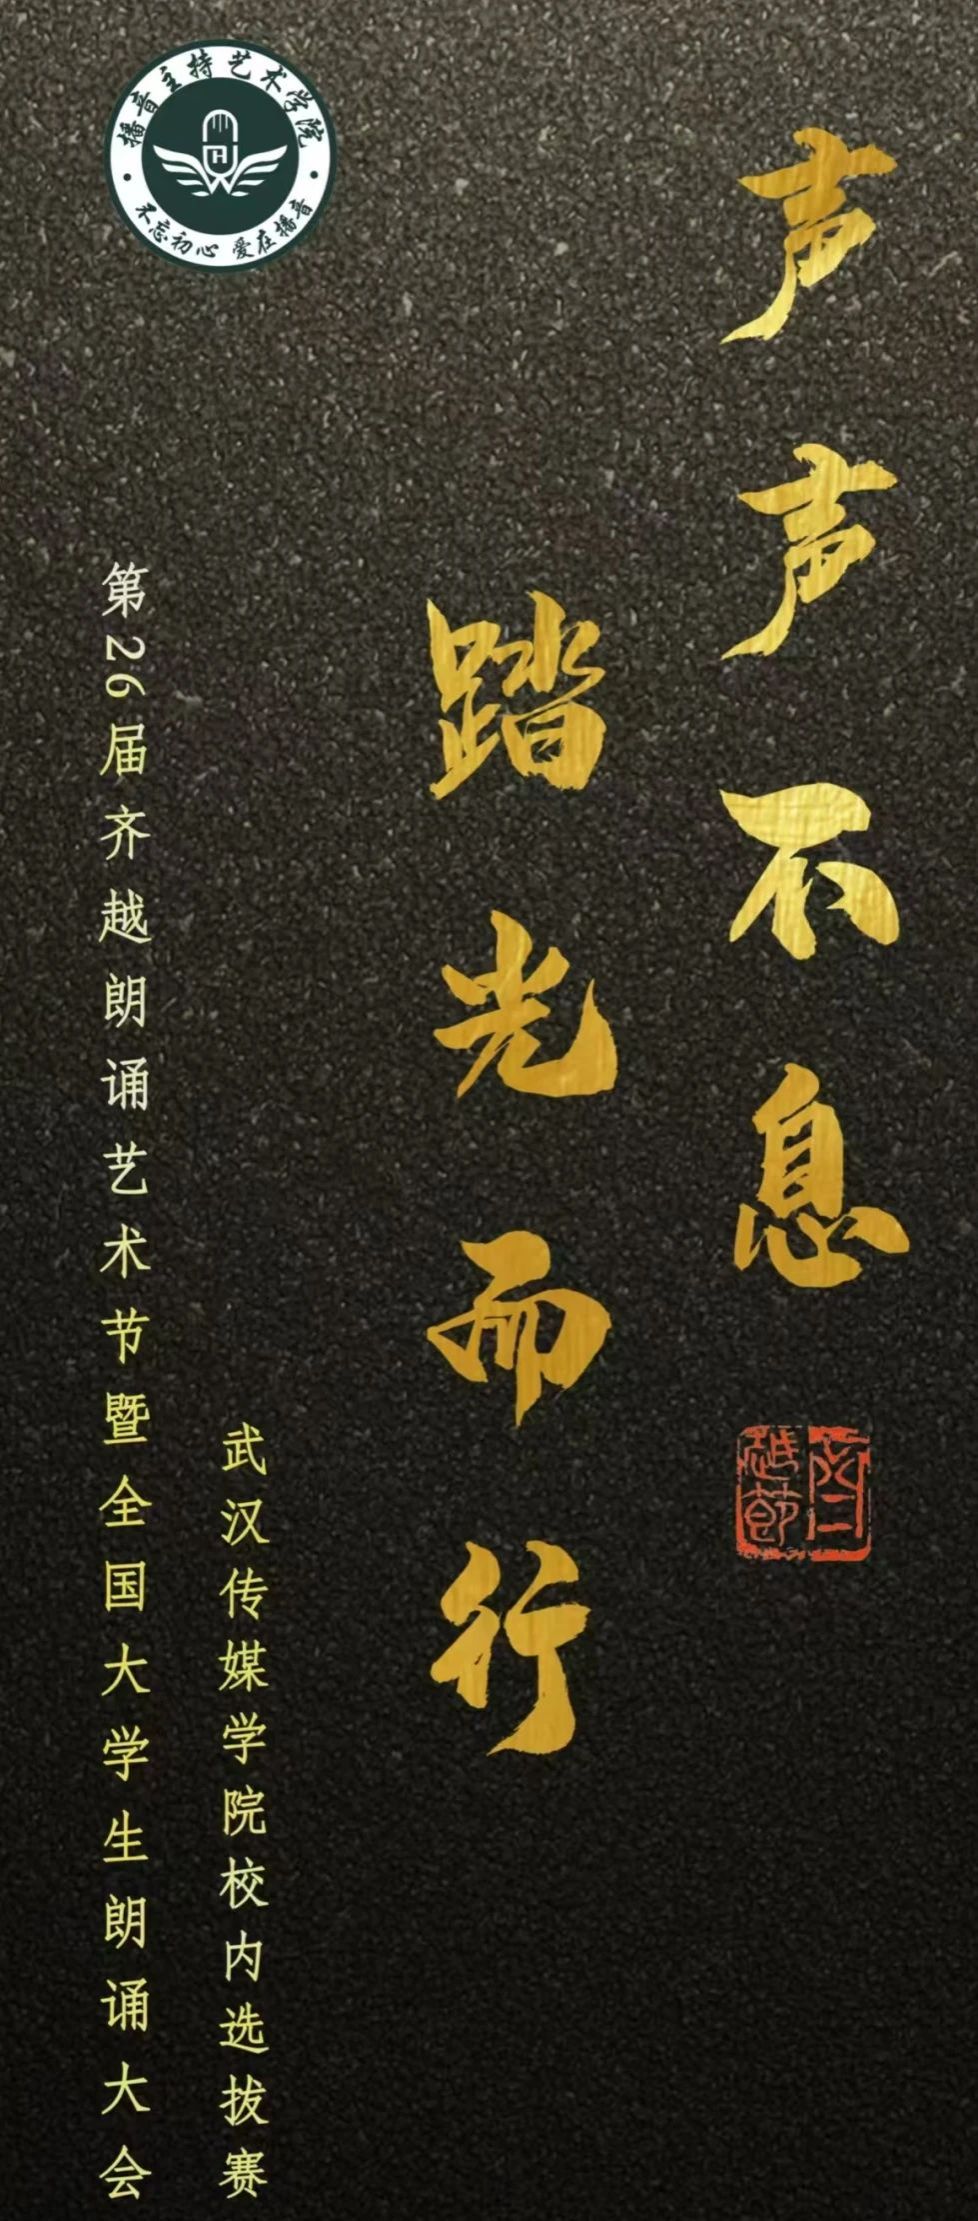 播音主持艺术学院
不忘初心 爱在播音
声声不息
踏光而行
第26届齐越朗诵艺术节暨全国大学生朗诵大会
武汉传媒学院校内选拔赛